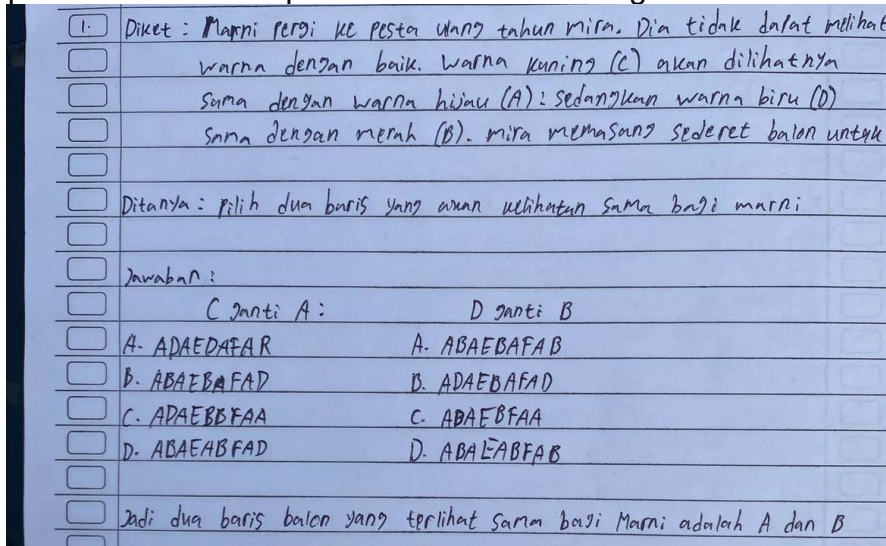 1. Diket : Marni pergi ke pesta ulang tahun mira. Dia tidak dapat melihat
warna dengan baik. warna kuning (C) akan dilihatnya
sama dengan warna hijau (A) : sedangkan warna biru (D)
sama dengan merah (B). mira memasang sederet balon untuk
Ditanya : pilih dua baris yang akan kelihatan sama bagi marni
Jawaban :
C Janti A : D ganti B
A. ADAEDAFAR A. ABAEBAFAB
B. ABAEBAFAD B. ADAEBAFAD
C. ADAEBDFAA C. ABAEBFAA
D. ABAEABFAD D. ABAEABFAB
Jadi dua baris balon yang terlihat sama bagi Marni adalah A dan B